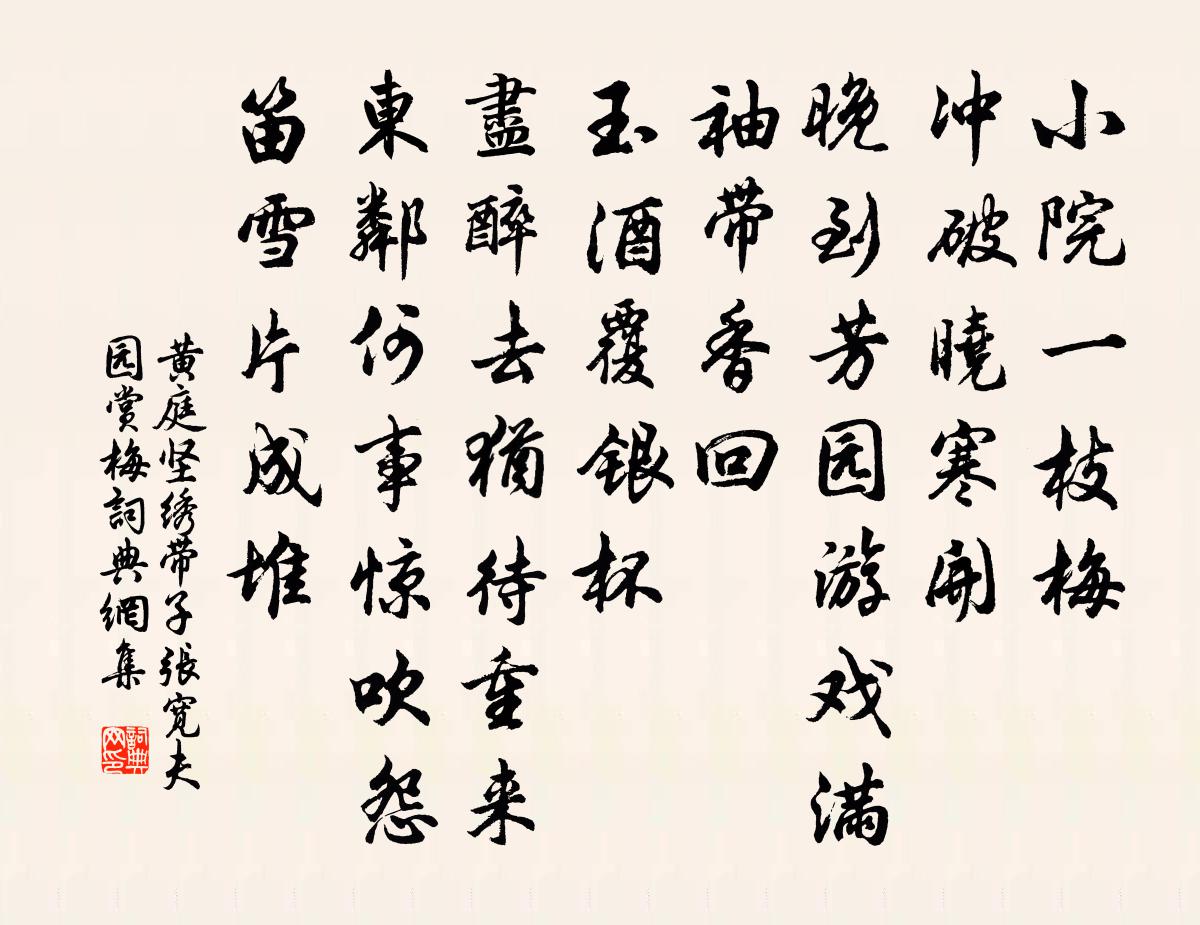 小院一枝梅
冲破曉寒開
晚到芳园游戏满
袖带香回
玉酒覆銀杯
盡醉去猶待重来
東鄰何事惊吹怨
笛雪片成堆
黄庭坚绣带子張寛夫
园赏梅詞典網集
詞典网印